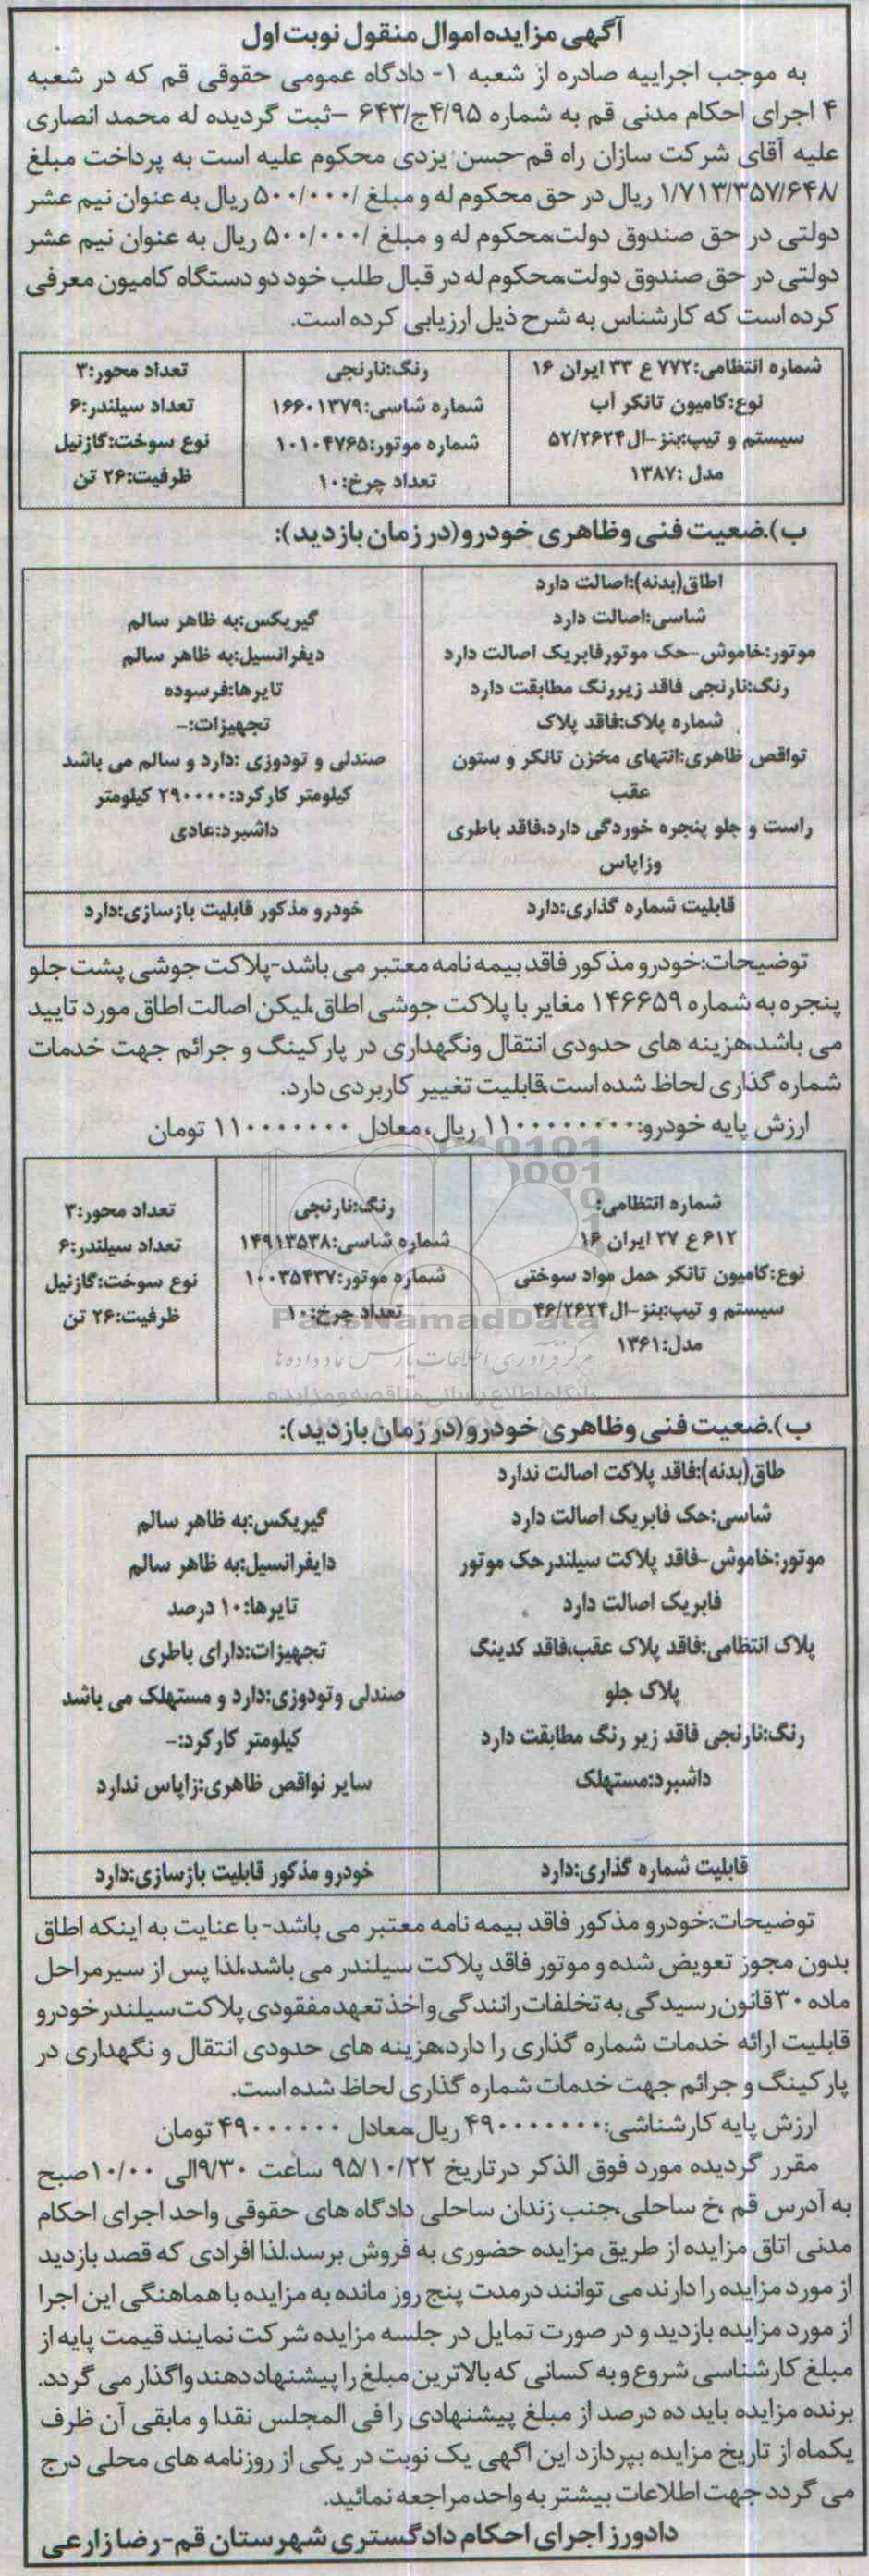 آگهی مزایده اموال منقول نوبت اول
به موجب اجراییه صادره از شعبه ۱- دادگاه عمومی حقوقی قم که در شعبه
۴ اجرای احکام مدنی قم به شماره ۴/۹۵ج/۶۴۳ –ثبت گردیده له محمد انصاری
علیه آقای شرکت سازان راه قم-حسن یزدی محکوم علیه است به پرداخت مبلغ
۱/۷۱۳/۳۵۷/۶۴۸/ ریال در حق محکوم له و مبلغ /۵۰۰/۰۰۰ ریال به عنوان نیم عشر
دولتی در حق صندوق دولت،محکوم له و مبلغ /۵۰۰/۰۰۰ ریال به عنوان نیم عشر
دولتی در حق صندوق دولت،محکوم له در قبال طلب خود دو دستگاه کامیون معرفی
کرده است که کارشناس به شرح ذیل ارزیابی کرده است.
شماره انتظامی:۷۷۲ ع ۳۳ ایران ۱۶
نوع:کامیون تانکر آب
سیستم و تیپ:بنز-ال۵۲/۲۶۲۴
مدل :۱۳۸۷
رنگ:نارنجی
شماره شاسی:۱۶۶۰۱۳۷۹
شماره موتور:۱۰۱۰۴۷۶۵
تعداد چرخ:۱۰
تعداد محور:۳
تعداد سیلندر:۶
نوع سوخت:گازئیل
ظرفیت:۲۶ تن
ب).ضعیت فنی وظاهری خودرو(در زمان بازدید):
اطاق(بدنه):اصالت دارد
شاسی:اصالت دارد
موتور:خاموش-حک موتورفابریک اصالت دارد
رنگ:نارنجی فاقد زیررنگ مطابقت دارد
شماره پلاک:فاقد پلاک
نواقص ظاهری:انتهای مخزن تانکر و ستون
عقب
راست و جلو پنجره خوردگی دارد،فاقد باطری
وزاپاس
گیربکس:به ظاهر سالم
دیفرانسیل:به ظاهر سالم
تایرها:فرسوده
تجهیزات:-
صندلی و تودوزی :دارد و سالم می باشد
کیلومتر کارکرد:۲۹۰۰۰۰ کیلومتر
داشبرد:عادی
قابلیت شماره گذاری:دارد
خودرو مذکور قابلیت بازسازی:دارد
توضیحات:خودرو مذکور فاقد بیمه نامه معتبر می باشد-پلاکت جوشی پشت جلو
پنجره به شماره ۱۴۶۶۵۹ مغایر با پلاکت جوشی اطاق،لیکن اصالت اطاق مورد تایید
می باشد،هزینه های حدودی انتقال ونگهداری در پارکینگ و جرائم جهت خدمات
شماره گذاری لحاظ شده است،قابلیت تغییر کاربردی دارد.
ارزش پایه خودرو:۱۱۰۰۰۰۰۰۰۰ ریال، معادل ۱۱۰۰۰۰۰۰۰ تومان
شماره انتظامی:
۶۱۲ ع ۲۷ ایران ۱۶
نوع:کامیون تانکر حمل مواد سوختی
سیستم و تیپ:بنز-ال۴۶/۲۶۲۴
مدل:۱۳۶۱
رنگ:نارنجی
شماره شاسی:۱۴۹۱۳۵۳۸
شماره موتور:۱۰۰۳۵۴۳۷
تعداد چرخ:۱۰
تعداد محور:۳
تعداد سیلندر:۶
نوع سوخت:گازئیل
ظرفیت:۲۶ تن
ParsNamadData
مرکز فرآوری اطلاعات پارس نماد داده ها
پایگاه اطلاع رسانی مناقصه و مزایده
ب).ضعیت فنی وظاهری خودرو(در زمان بازدید):
طاق(بدنه):فاقد پلاکت اصالت ندارد
شاسی:حک فابریک اصالت دارد
موتور:خاموش-فاقد پلاکت سیلندرحک موتور
فابریک اصالت دارد
پلاک انتظامی:فاقد پلاک عقب،فاقد کدینگ
پلاک جلو
رنگ:نارنجی فاقد زیر رنگ مطابقت دارد
داشبرد:مستهلک
گیربکس:به ظاهر سالم
دایفرانسیل:به ظاهر سالم
تایرها:۱۰ درصد
تجهیزات:دارای باطری
صندلی وتودوزی:دارد و مستهلک می باشد
کیلومتر کارکرد:-
سایر نواقص ظاهری:زاپاس ندارد
قابلیت شماره گذاری:دارد
خودرو مذکور قابلیت بازسازی:دارد
توضیحات:خودرو مذکور فاقد بیمه نامه معتبر می باشد- با عنایت به اینکه اطاق
بدون مجوز تعویض شده و موتور فاقد پلاکت سیلندر می باشد،لذا پس از سیرمراحل
ماده ۳۰قانون رسیدگی به تخلفات رانندگی و اخذ تعهد مفقودی پلاکت سیلندر خودرو
قابلیت ارائه خدمات شماره گذاری را دارد،هزینه های حدودی انتقال و نگهداری در
پارکینگ و جرائم جهت خدمات شماره گذاری لحاظ شده است.
ارزش پایه کارشناشی:۴۹۰۰۰۰۰۰۰ ریال،معادل ۴۹۰۰۰۰۰۰ تومان
مقرر گردیده مورد فوق الذکر درتاریخ ۹۵/۱۰/۲۲ ساعت ۹/۳۰الی ۱۰/۰۰صبح
به آدرس قم ،خ ساحلی،جنب زندان ساحلی دادگاه های حقوقی واحد اجرای احکام
مدنی اتاق مزایده از طریق مزایده حضوری به فروش برسد.لذا افرادی که قصد بازدید
از مورد مزایده را دارند می توانند درمدت پنج روز مانده به مزایده با هماهنگی این اجرا
از مورد مزایده بازدید و در صورت تمایل در جلسه مزایده شرکت نمایند قیمت پایه از
مبلغ کارشناسی شروع و به کسانی که بالاترین مبلغ را پیشنهاد دهند واگذار می گردد.
برنده مزایده باید ده درصد از مبلغ پیشنهادی را فی المجلس نقدا و مابقی آن ظرف
یکماه از تاریخ مزایده بپردازد این اگهی یک نوبت در یکی از روزنامه های محلی درج
می گردد جهت اطلاعات بیشتر به واحد مراجعه نمائید.
دادورز اجرای احکام دادگستری شهرستان قم- رضا زارعی